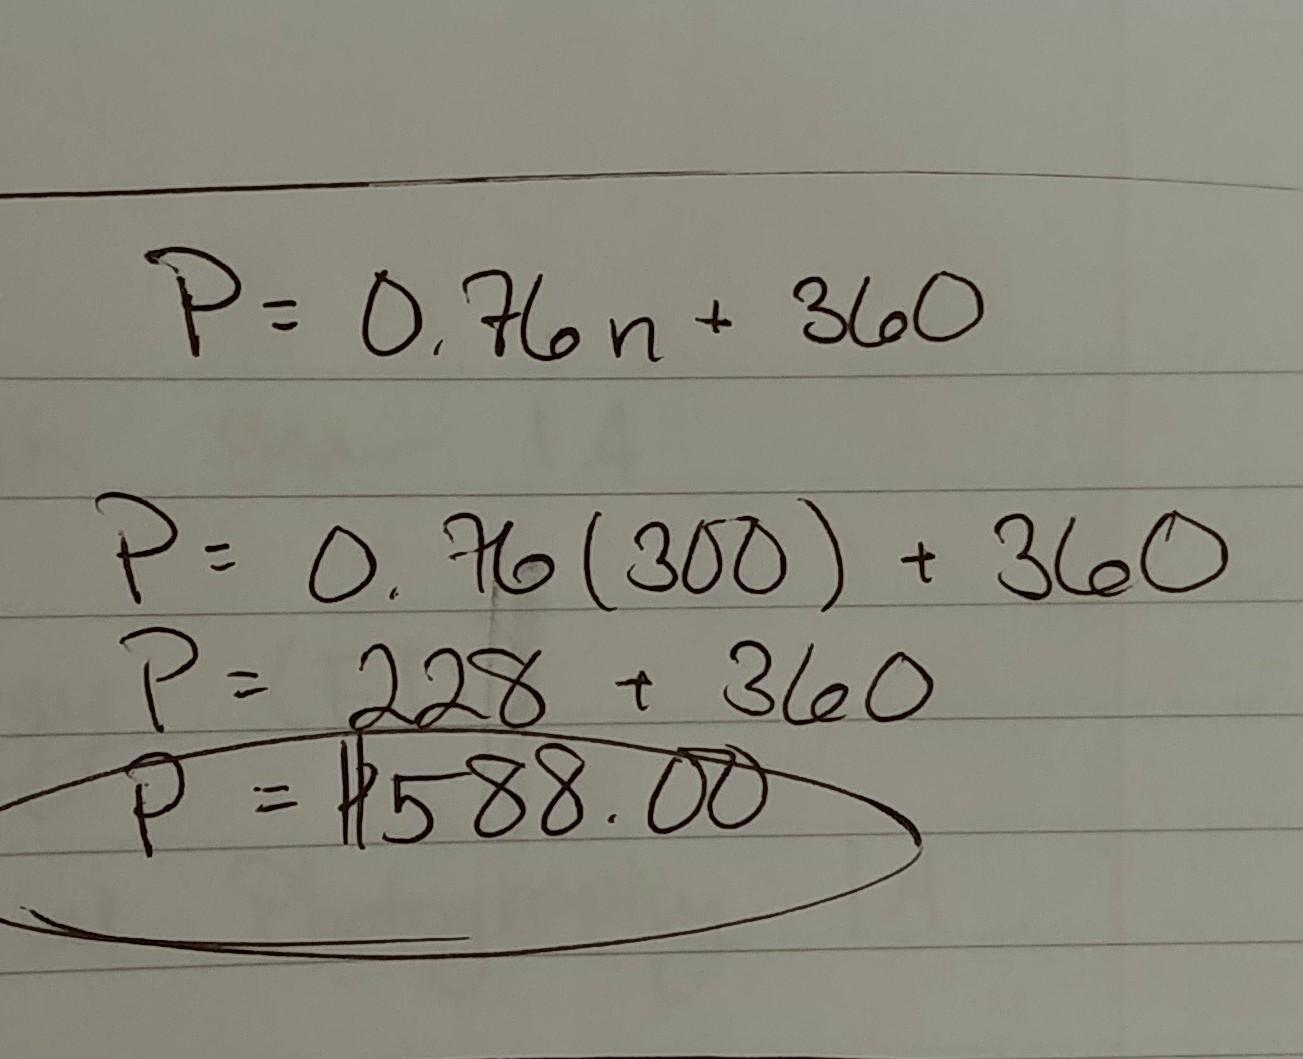 P = 0.76n + 360
P = 0.76(300) + 360
P = 228 + 360
P = $588.00